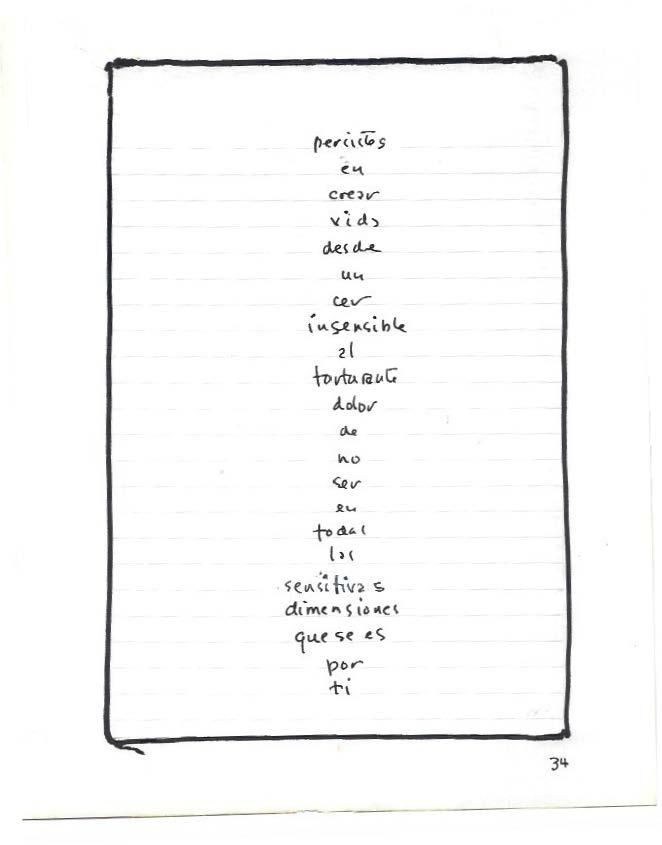 percistes
en
crear
vida
desde
un
cer
insensible
al
torturante
dolor
de
no
ser
en
todas
las
sensitivas
dimensiones
que se es
por
ti
34